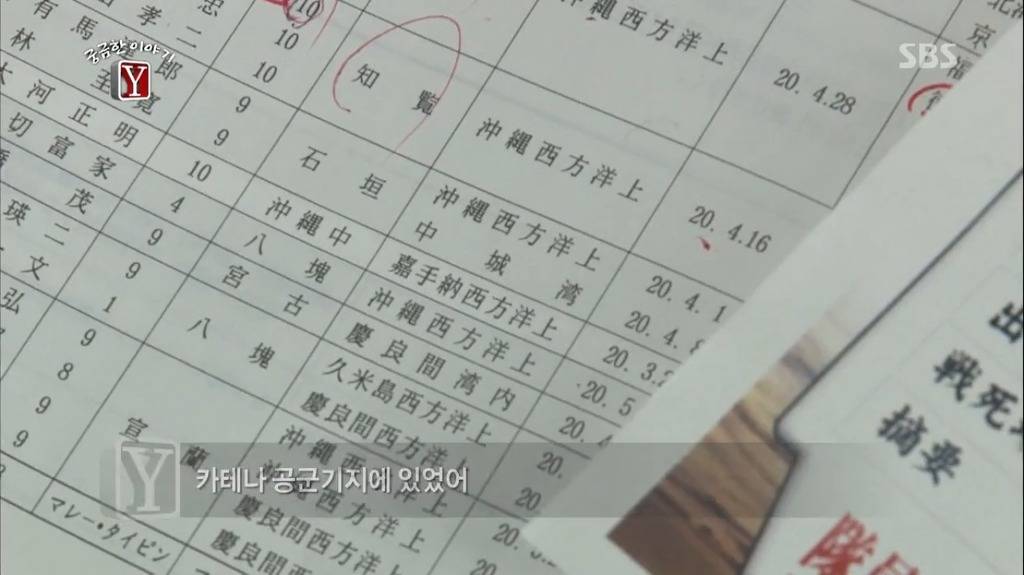 궁금한 이야기
Y
SBS
忠
10
沖縄西方洋上
孝二
10
20. 4.28
有馬達郎
10
知覧
沖縄西方洋上
20. 4.16
林
9
大河正明
9
石垣
沖縄西方洋上
20. 4. 1
切富家
10
沖縄中
中城湾
20. 4. 8
茂
4
八塊
嘉手納西方洋上
20. 3.2
瑛二
9
宮古
沖縄西方洋上
20. 5
文
9
八塊
慶良間湾内
20. 4
弘
1
久米島西方洋上
20.
9
慶良間西方洋上
20.
8
宣蘭
沖縄西方洋上
9
沖縄西方洋上
9
慶良間西方洋上
マレー・タイピン
慶良間西方洋上
京
出
戦死
摘要
隊
Y
카테나 공군기지에 있었어